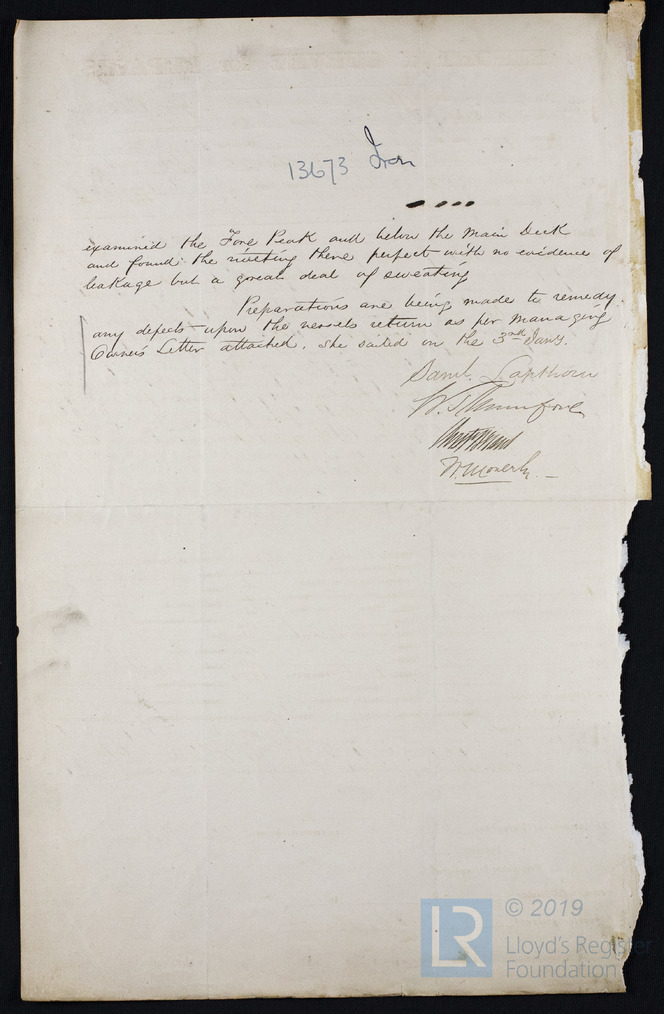 13673 Iron
examined the Fore Peak and below the Main Deck
and found the riveting there perfect with no evidence of
leakage but a great deal of sweating
Preparations are being made to remedy
any defects upon the vessels return as per Managing
Owner's Letter attached. She sailed on the 3rd Jany.
Saml. Lapthorn
W.
W.
LR
© 2019
Lloyd's Register
Foundation